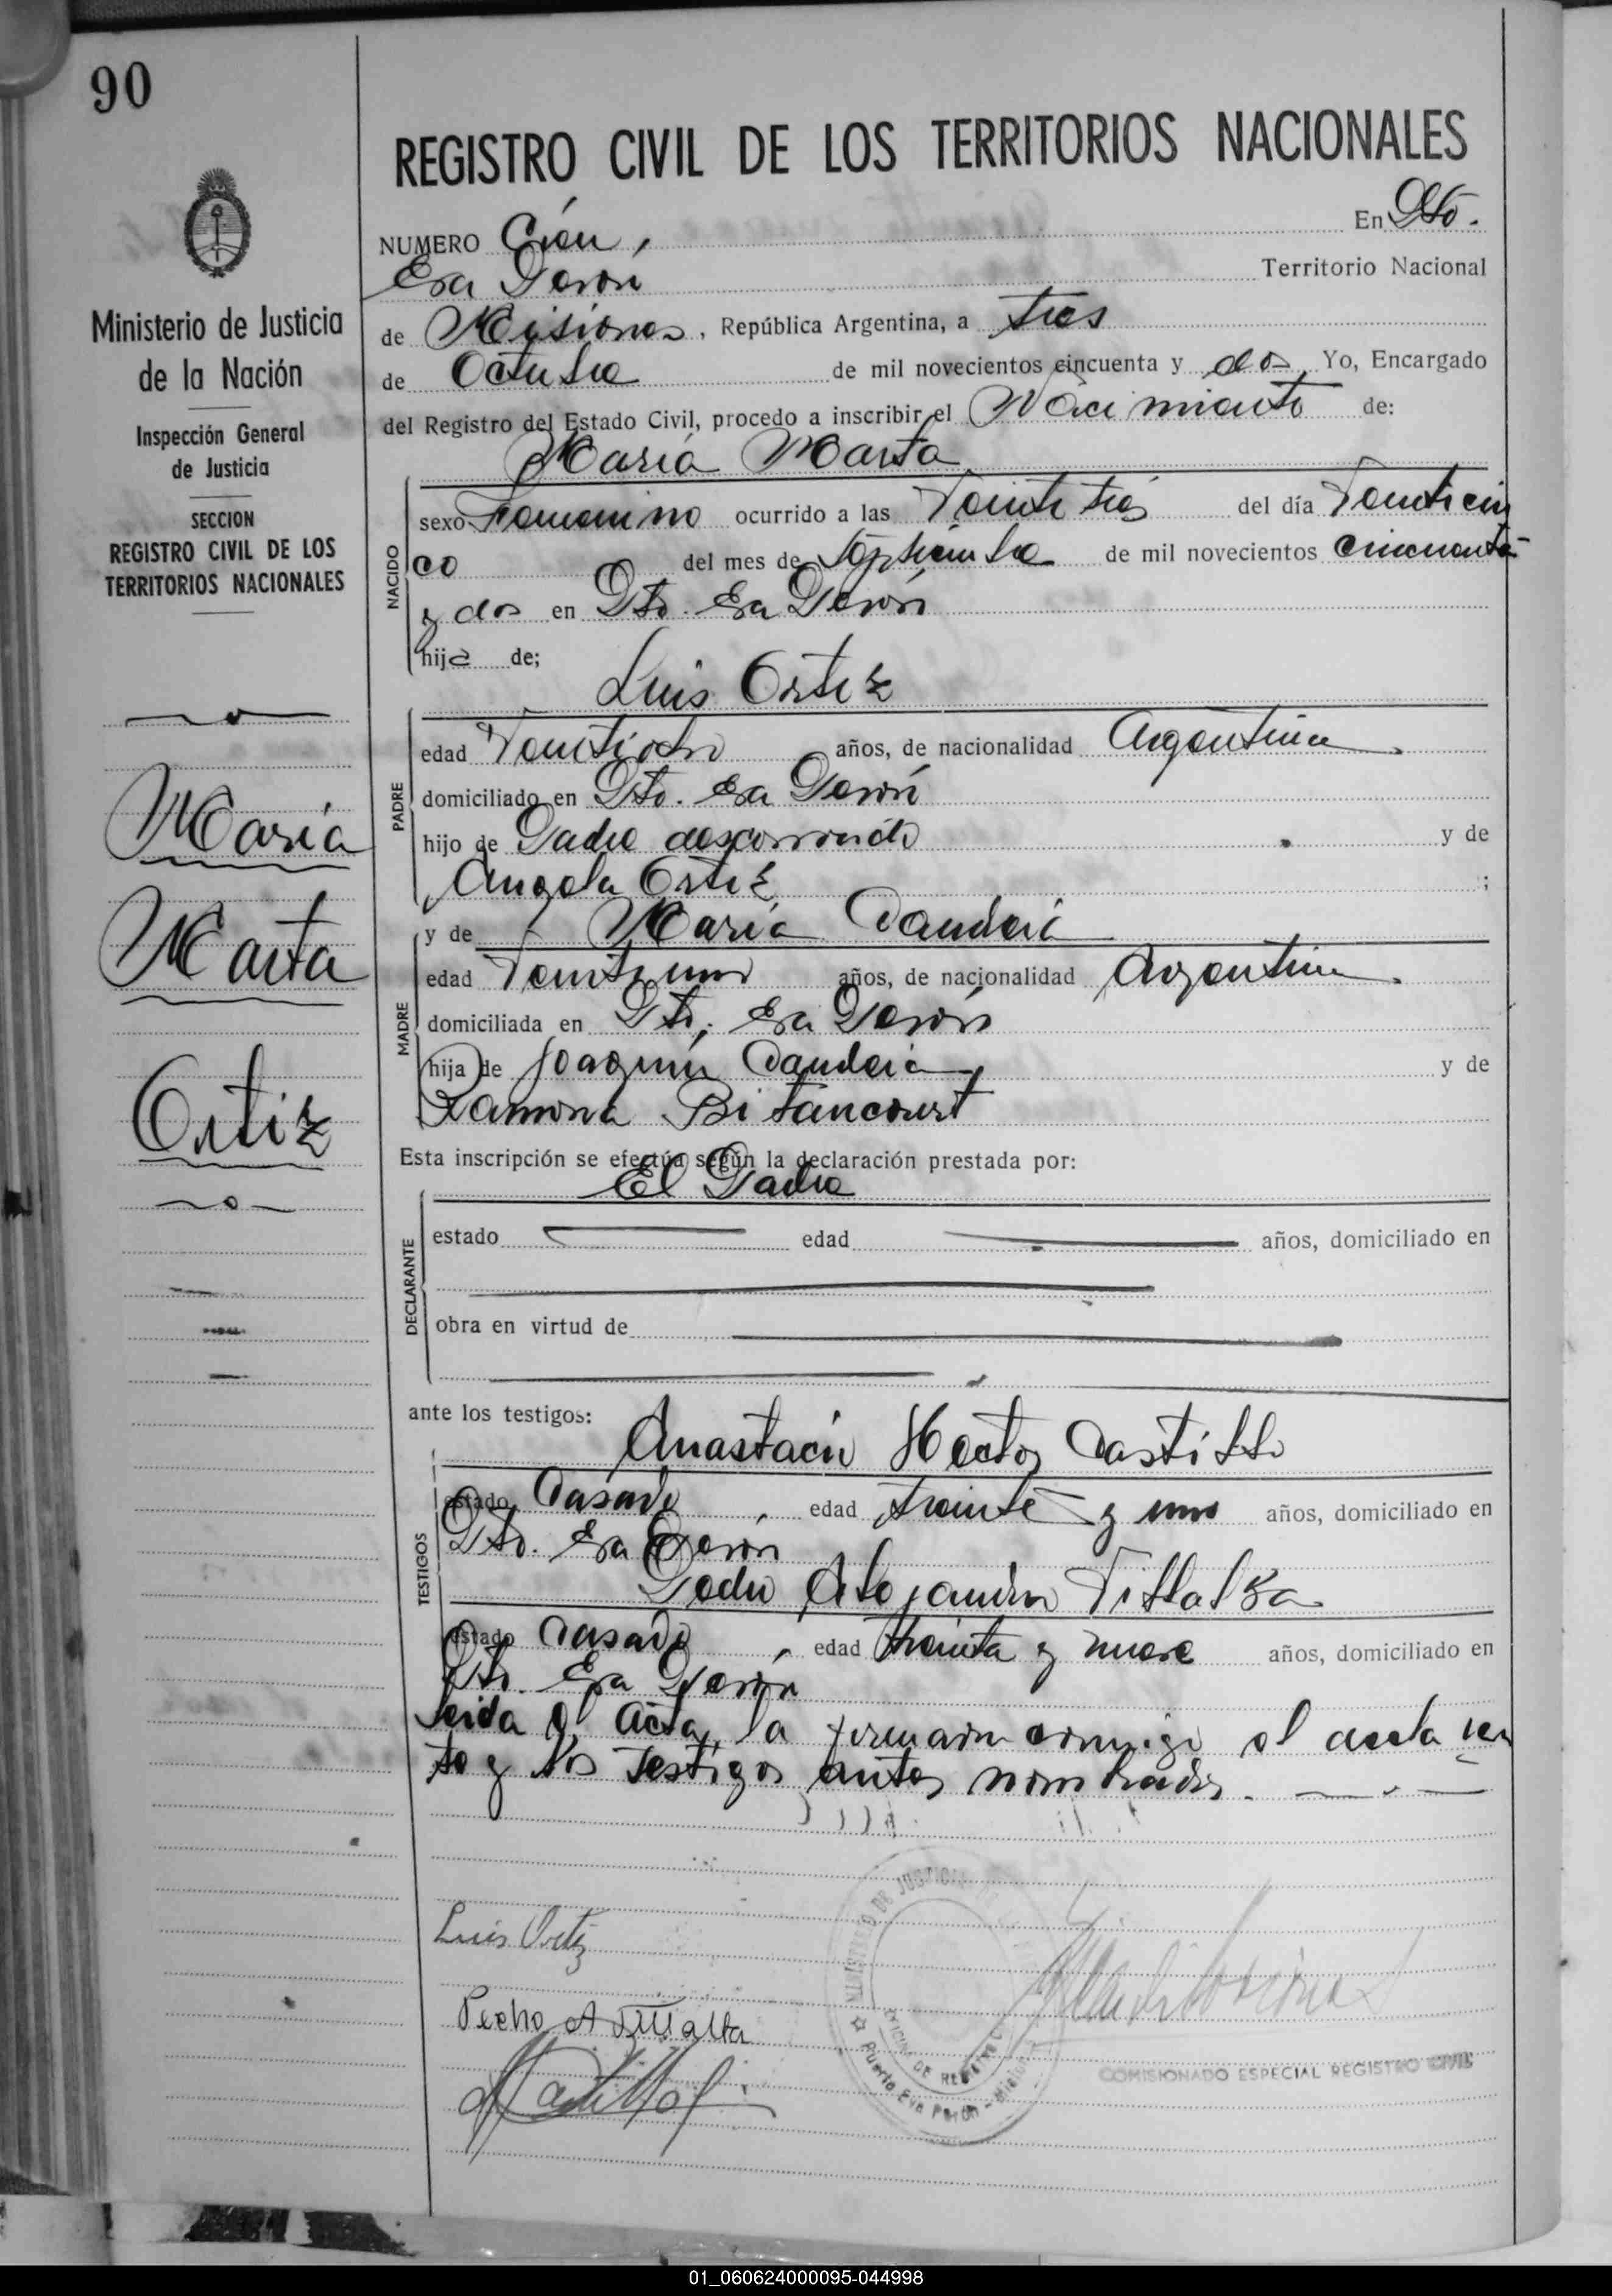 90
REGISTRO CIVIL DE LOS TERRITORIOS NACIONALES
NUMERO Cien, En Pto.
Eva Perón Territorio Nacional
de Misiones, República Argentina, a tres
de Octubre de mil novecientos cincuenta y dos Yo, Encargado
del Registro del Estado Civil, procedo a inscribir el Nacimiento de:
María Marta
NACIDO
sexo Femenino ocurrido a las Veinte tres del día Veinticin
co del mes de Septiembre de mil novecientos cincuenta
y dos en Pto. Eva Perón
hija de;
Luis Ortiz
PADRE
edad Veintiocho años, de nacionalidad Argentina
domiciliado en Pto. Eva Perón
hijo de Padre desconocido y de
Angela Ortiz ;
y de María Candeia
MADRE
edad Veintiuno años, de nacionalidad Argentina
domiciliada en Pto, Eva Perón
hija de Joaquin Candeia y de
Ramona Bitancourt
Esta inscripción se efectúa según la declaración prestada por:
El Padre
DECLARANTE
estado edad años, domiciliado en
obra en virtud de
ante los testigos:
Anastacio Hector Castillo
TESTIGOS
estado Casado edad treinta y uno años, domiciliado en
Pto. Eva Perón
Pedro Alejandro Villalba
estado Casado, edad treinta y nueve años, domiciliado en
Pto. Eva Perón
Leida el acta, la firmaron conmigo el decla ran
te y los testigos antes nombrados.
Luis Ortiz
Pedro A Villalba
Castillo
MINISTERIO DE JUSTICIA
OFICINA DE REGISTRO
Puerto Eva Perón - Misiones
COMISIONADO ESPECIAL REGISTRO CIVIL
Ministerio de Justicia
de la Nación
Inspección General
de Justicia
SECCION
REGISTRO CIVIL DE LOS
TERRITORIOS NACIONALES
María
Marta
Ortiz
01_060624000095-044998